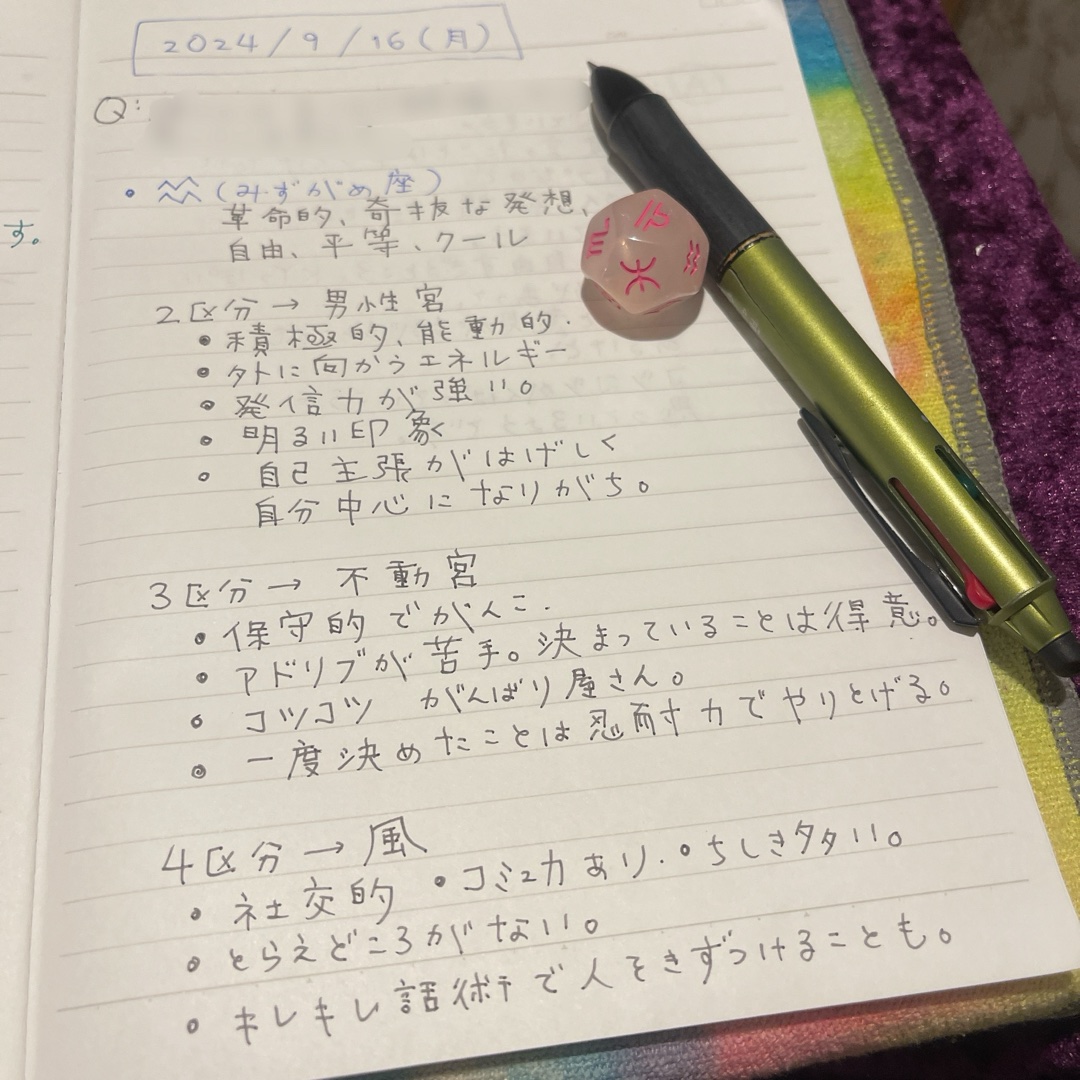 2024/9/16(月)
Q:
す。
• ♒ (みずがめ座)
革命的、奇抜な発想、
自由、平等、クール
2区分→男性宮
• 積極的、能動的.
• 外に向かうエネルギー
• 発信力が強い。
• 明るい印象
• 自己主張がはげしく
自分中心になりがち。
3区分→不動宮
• 保守的でがんこ.
• アドリブが苦手。決まっていることは得意。
• コツコツ がんばり屋さん。
• 一度決めたことは忍耐力でやりとげる。
4区分→風
• 社交的 • コミュ力あり. • ちしき多い。
• とらえどころがない。
• キレキレ話術で人をきずつけることも。
♏ ♎ ♓ ♒